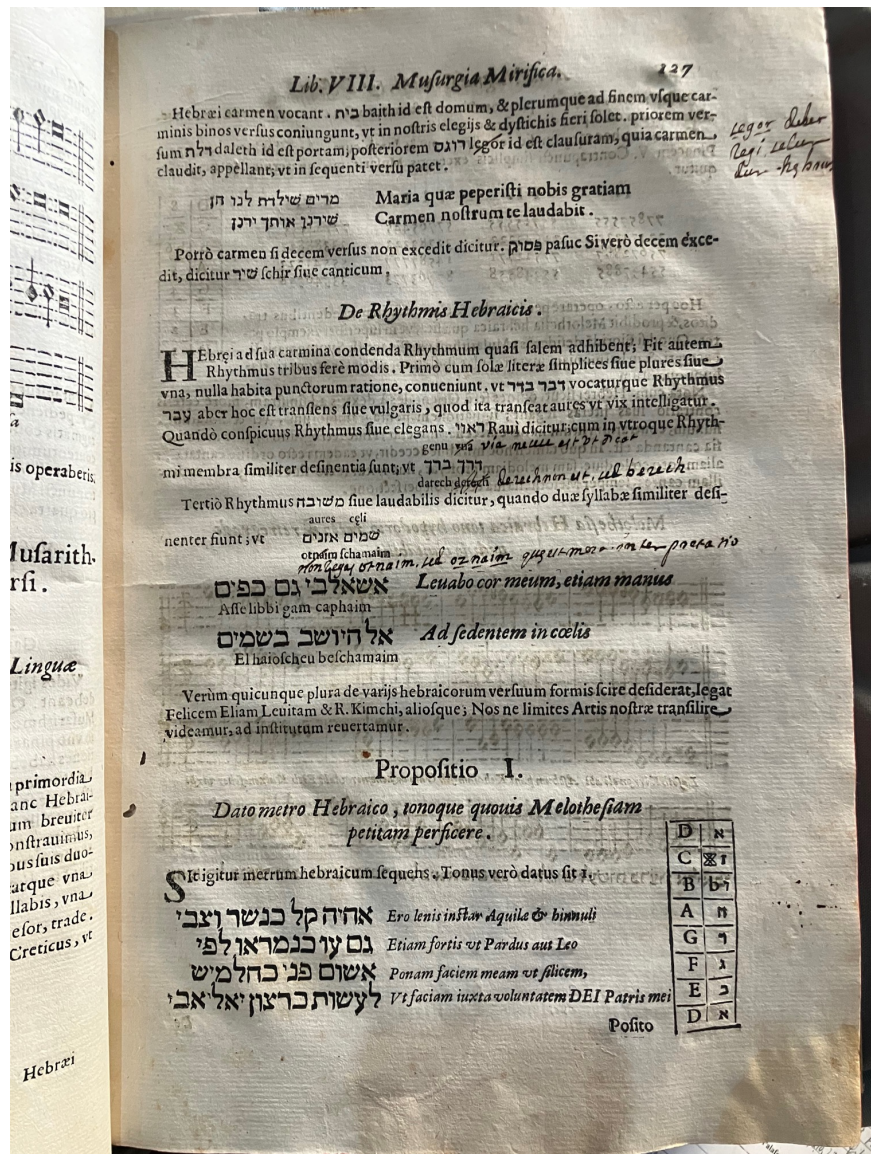 Lib. VIII. Musurgia Mirifica. 127
Hebræi carmen vocant. בית baith id est domum, & plerumque ad finem vsque car-
minis binos versus coniungunt, vt in nostris elegijs & dystichis fieri solet. priorem ver-
sum דלת daleth id est portam; posteriorem סוגר legor id est clausuram, quia carmen
claudit, appellant; vt in sequenti versu patet.
legor deber
legi
מרים שילדת לנו חן Maria quæ peperisti nobis gratiam
שירנו אותך ירנן Carmen nostrum te laudabit.
Porrò carmen si decem versus non excedit dicitur. פסוק pasuc Si verò decem exce-
dit, dicitur שיר schir siue canticum.
De Rhythmis Hebraicis.
HEbręi ad sua carmina condenda Rhythmum quasi salem adhibent; Fit autem
Rhythmus tribus ferè modis. Primò cum solæ literæ simplices siue plures siue
vna, nulla habita punctorum ratione, conueniunt. vt דבר בדר vocaturque Rhythmus
עבר aber hoc est transiens siue vulgaris, quod ita transeat aures vt vix intelligatur.
Quandò conspicuus Rhythmus siue elegans. ראוי Raui dicitur; cum in vtroque Rhyth-
genu via
mi membra similiter desinentia sunt; vt דרך ברך
darech derech non est, sed berech
Tertiò Rhythmus משובח siue laudabilis dicitur, quando duæ syllabæ similiter desi-
aures cęli
nenter fiunt; vt שמים אזנים
otnaim schamaim
non legas otnaim, sed oznaim
אשא לבי גם כפים Leuabo cor meum, etiam manus
Asse libbi gam caphaim
אל היושב בשמים Ad sedentem in cœlis
El haioscheu beschamaim
Verùm quicunque plura de varijs hebraicorum versuum formis scire desiderat, legat
Felicem Eliam Leuitam & R. Kimchi, aliosque; Nos ne limites Artis nostræ transilire
videamur, ad institutum reuertamur.
Propositio I.
Dato metro Hebraico, tonoque quouis Melothesiam
petitam perficere.
SIt igitur metrum hebraicum sequens. Tonus verò datus sit 1.
אהיה קל כנשר וצבי Ero lenis instar Aquilæ & binnuli
גם עז כנמר או לפי Etiam fortis vt Pardus aut Leo
אשום פני כחלמיש Ponam faciem meam vt silicem,
לעשות כרצון יאל אבי Vt faciam iuxta voluntatem DEI Patris mei
Posito
D א
C ז
B
A ח
G ד
F ג
E ב
D א
is operaberis
Musarith.
rsi.
Linguæ
primordia
anc Hebrai-
um breuiter
onstrauimus,
ous suis duo-
atque vna
llabis, vna
esor, trade.
Creticus, vt
Hebræi